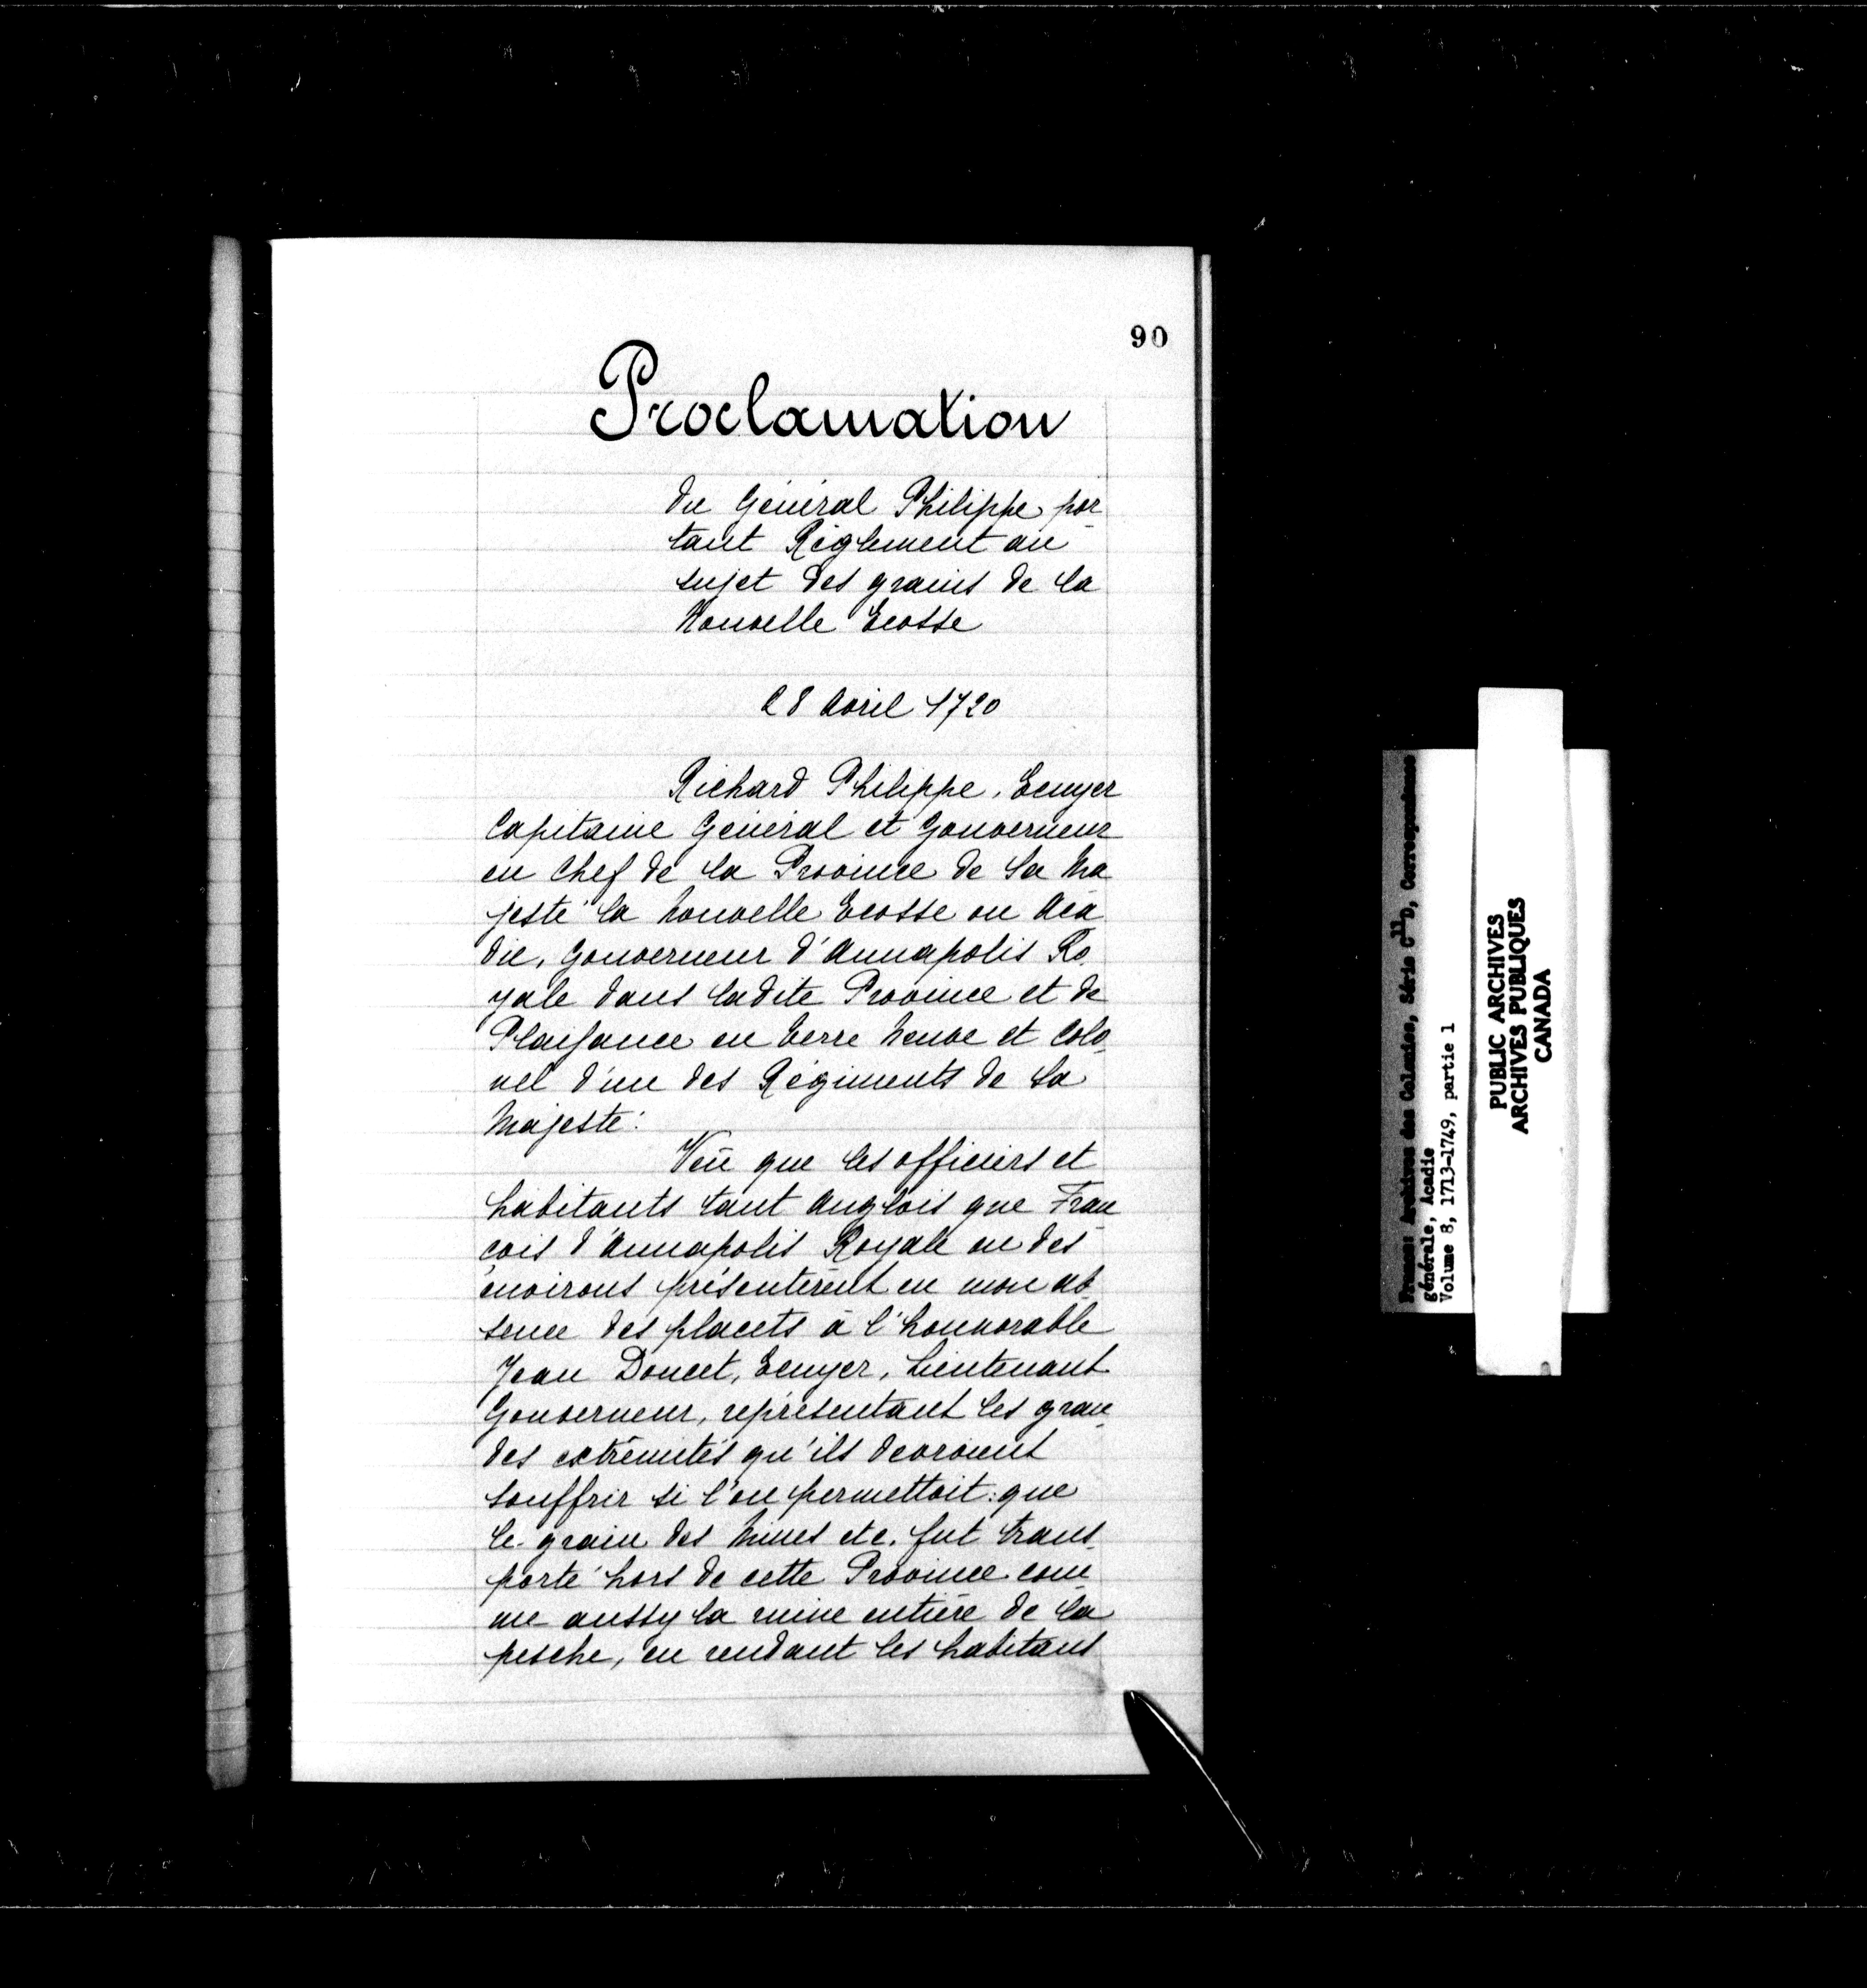 90
Proclamation
du Général Philippe por-
tant Règlement au
sujet des grains de la
Nouvelle Ecosse
28 Avril 1720
Richard Philippe, Ecuyer
Capitaine Général et Gouverneur
en Chef de la Province de Sa Ma
jesté la nouvelle Ecosse ou Aca
die, Gouverneur d'Annapolis Ro
yale dans ladite Province et de
Plaisance en terre neuve et Colo
nel d'un des Régiments de Sa
Majesté:
Veü que les officiers et
habitants tant Anglois que Fran
çois d'Annapolis Royale ou des
environs présentèrent en mon ab
sence des placets à l'honnorable
Jean Doucet, Ecuyer, Lieutenant
Gouverneur, représentant les gran
des extrêmités qu'ils devroient
souffrir si l'on permettoit que
le grain des Mines etc. fut trans
porté hors de cette Province com
me aussy la ruine entière de la
pesche, en rendant les habitans
France: Archives des Colonies, Série C11D, Correspondance
générale, Acadie
Volume 8, 1713-1749, partie 1
PUBLIC ARCHIVES
ARCHIVES PUBLIQUES
CANADA